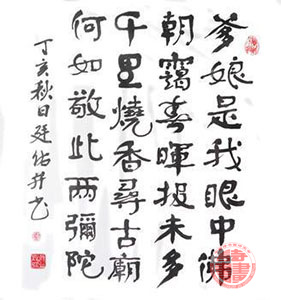 爹娘是我眼中佛
朝靄春暉报未多
千里燒香尋古廟
何如敬此两彌陀
丁亥秋日廷佑并书